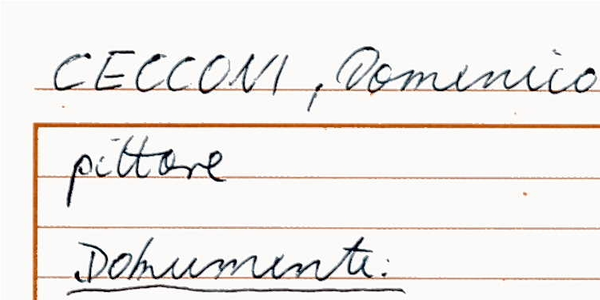 CECCONI, Domenico
pittore
Dokumente: